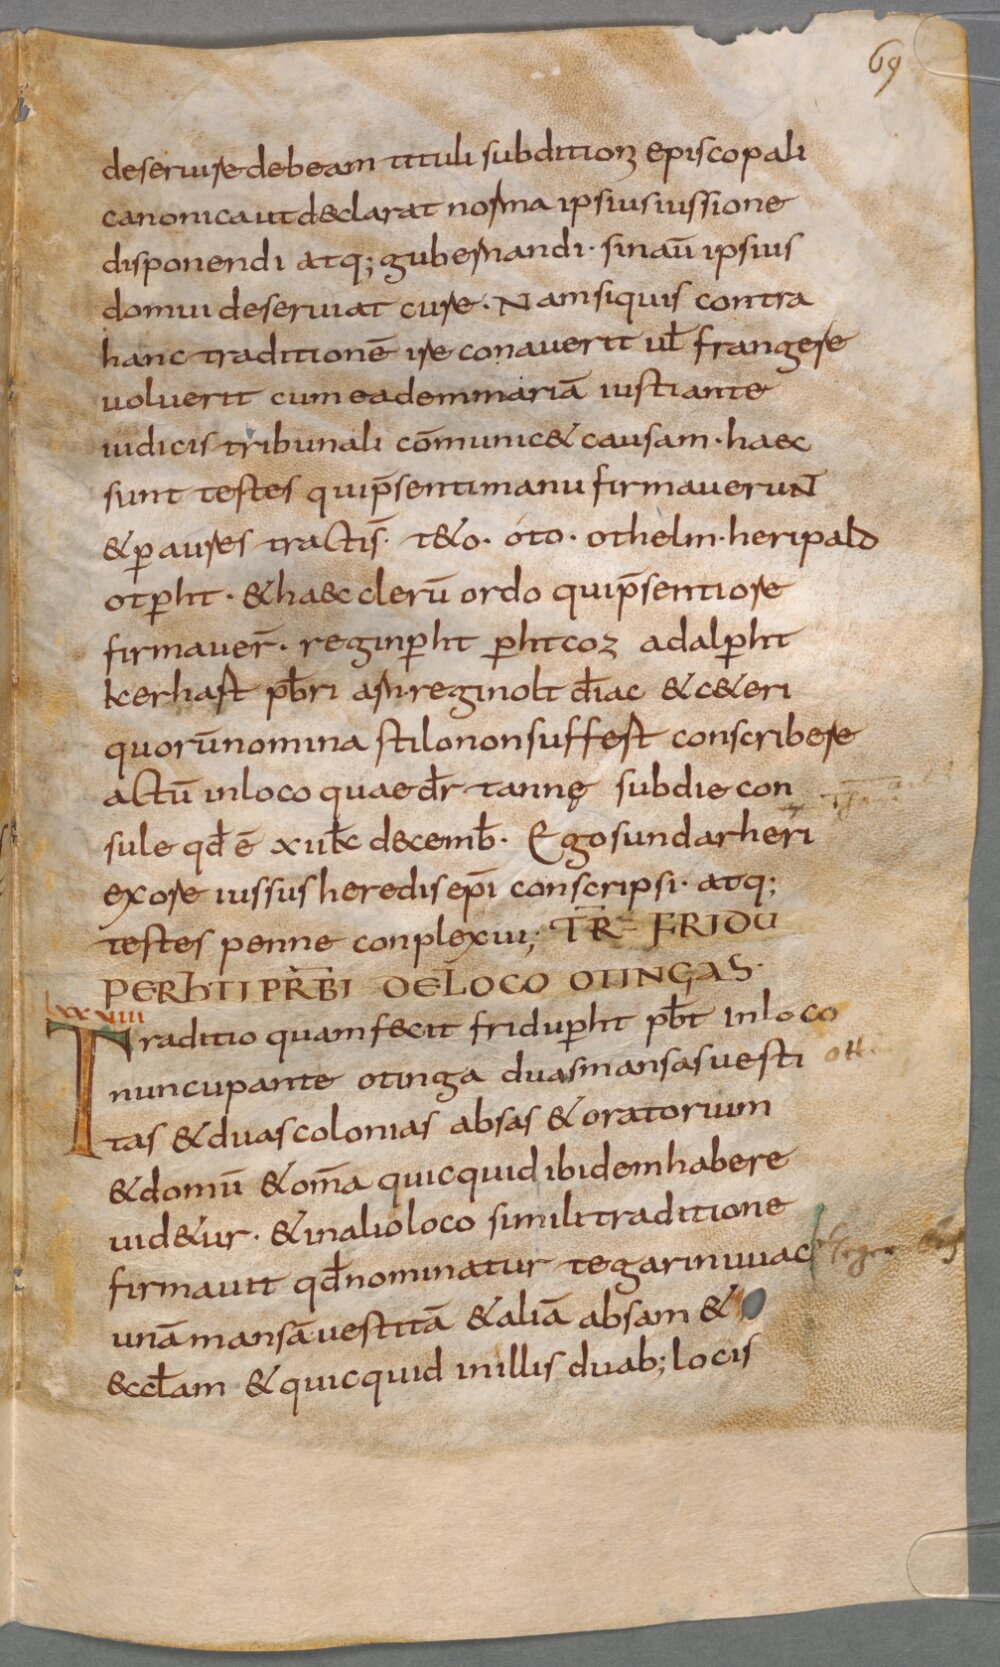 69
deseruire debeam tituli subdition&#42845; episcopali
canonica ut declarat norma ipsius iussione
disponendi atq; gubernandi· sin aū ipsius
domui deseruiat cure· Nam siquis contra
hanc traditionē ire conauerit uł frangere
uoluerit cum eadem mariā iusti ante
iudicis tribunali cōmunic& causam· haec
sunt testes qui p̄senti manu firmauerunt
& ꝑ aures tractis̄· t&o· óto· othelm· heripald
otꝑht· & haec clerū ordo qui p̄senti ore
firmauer̄· reginꝑht ꝑhtcoz adalꝑht
kerhaft p̄bri arn· reginolt d̄iac & c&eri
quorū nomina stilo non suffest conscribere
actū in loco quae dr̄ tannę subdie con
sule qđ ē xii kł decemb̄· Ego sundarheri
ex ore iussus heredis ep̄i conscripsi· atq;
testes penne conplexui; TR̄ FRIDU
PERHTI PR̄BI DE LOCO OTINGAS·
LXXIIII
Traditio quam fecit friduꝑht p̄bt in loco
nuncupante otinga duas mansas uesti
tas & duas colonias absas & oratorium
& domū & om̄a quicquid ibidem habere
uid&ur· & in alio loco simili traditione
firmauit qđ nominatur tegarinuuac
unā mansā uestitā & aliā absam &
&ccl̄am & quicquid in illis duab; locis